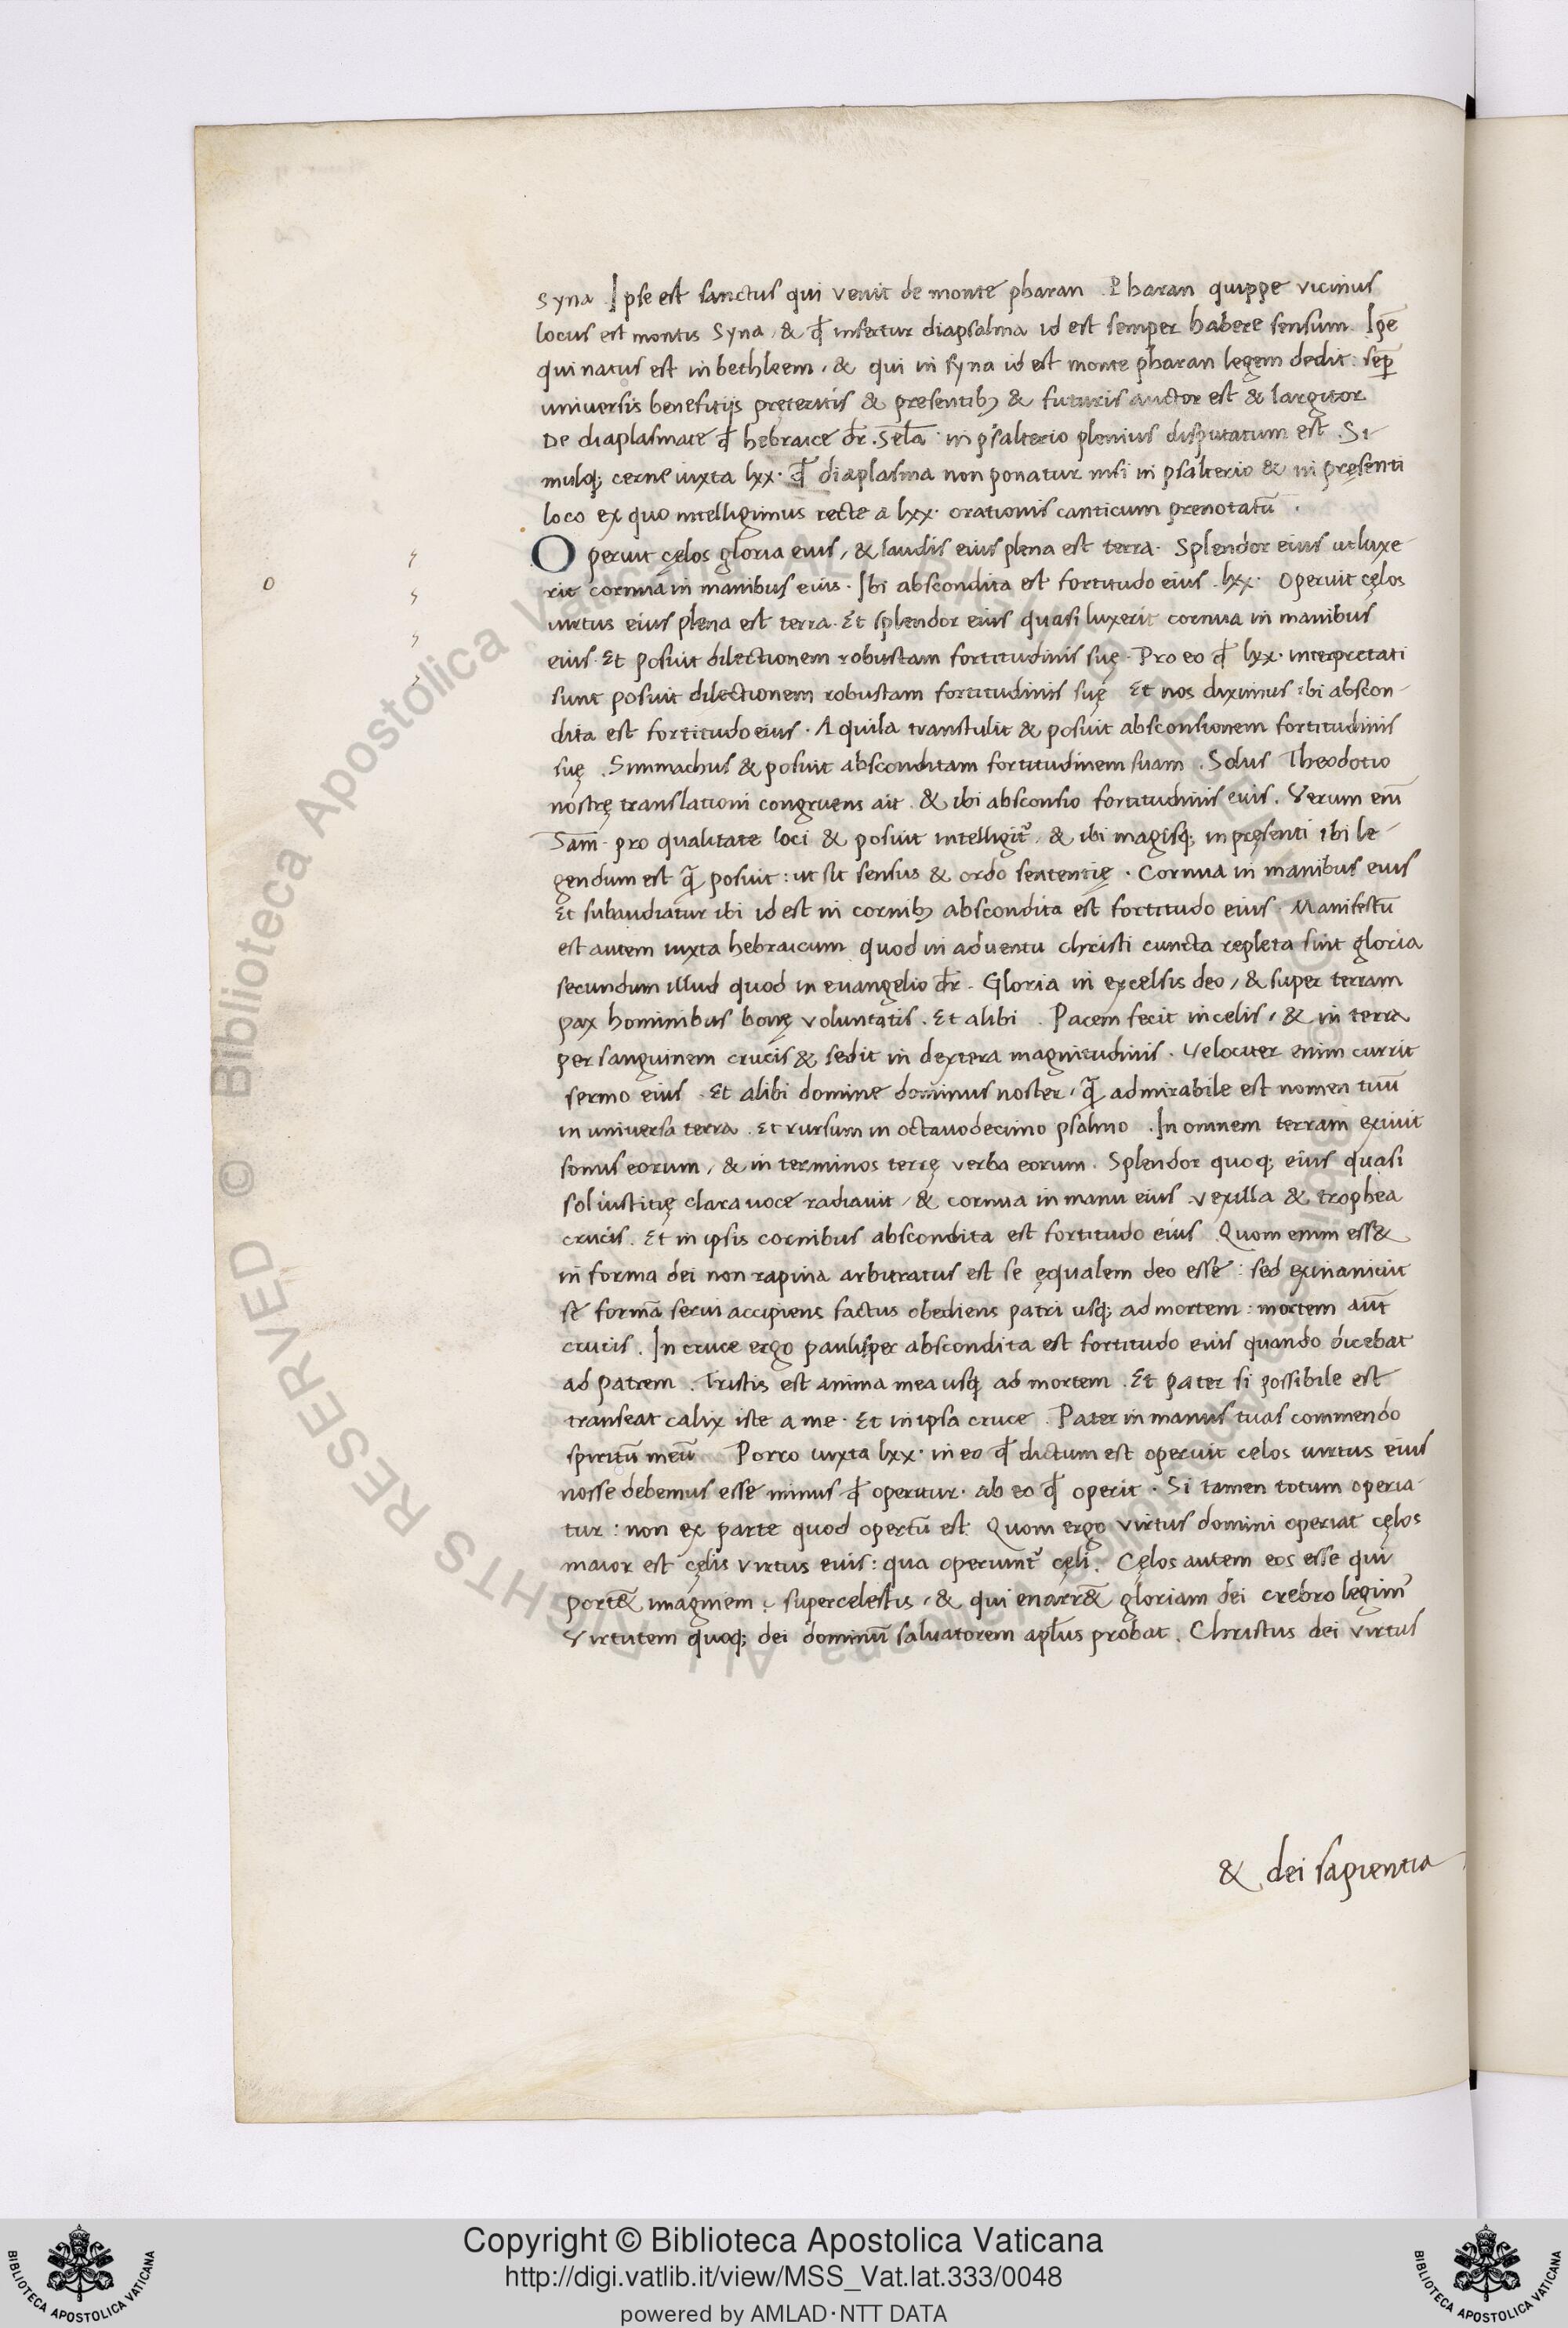 syna . Ipse est sanctus qui venit de monte pharan . Pharan quippe vicinus
locus est montis Syna , & qđ insertur diapsalma id est semper habere sensum . Ip̄e
qui natus est in bethleem , & qui in syna id est monte pharan legem dedit : sep̄
universis benefitijs pręteritis & presentib; & futuris auctor est & largitor
De diaplasmate qđ hebraice dr̄ . Sela̅ in psalterio plenius disputatum est . Si
mulq; cerne iuxta lxx · qđ diaplasma non ponatur nisi in psalterio & in pręsenti
loco ex quo intelligimus recte a lxx · orationis canticum prenotatū .
Operuit cęlos gloria eius , & laudis eius plena est terra . Splendor eius ut luxe-
o
rit cornua in manibus eius . Ibi abscondita est fortitudo eius . lxx · Operuit cęlos
virtus eius plena est terra . Et splendor eius quasi luxerit cornua in manibus
eius . Et posuit dilectionem robustam fortitudinis suę . Pro eo qđ lxx · interpretati
sunt posuit dilectionem robustam fortitudinis suę Et nos diximus ibi abscon-
dita est fortitudo eius . Aquila transtulit & posuit absconsionem fortitudinis
suę . Simmachus & posuit absconditam fortitudinem suam . Solus Theodotio
nostrę translationi congruens ait . & ibi absconsio fortitudinis eius . Verum em̄
Sam̄ . pro qualitate loci & posuit intelligit᷑ , & ibi magisq; in pręsenti ibi le-
gendum est q̄ posuit : ut sit sensus & ordo sententię . Cornua in manibus eius
Et subaudiatur ibi id est in cornib; abscondita est fortitudo eius . Manifestū
est autem iuxta hebraicum quod in adventu christi cuncta repleta sint gloria
secundum illud quod in evangelio dr̄ . Gloria in excelsis deo , & super terram
pax hominibus bonę voluntatis . Et alibi . Pacem fecit in celis , & in terra
per sanguinem crucis & sedit in dextera magnitudinis . Velociter enim currit
sermo eius . Et alibi domine dominus noster , q̄ admirabile est nomen tuū
in universa terra . Et rursum in octavodecimo psalmo . In omnem terram exivit
sonus eorum , & in terminos terrę verba eorum . Splendor quoq; eius quasi
sol iustitię clara voce radiavit , & cornua in manu eius vexilla & trophea
crucis . Et in ipsis cornibus abscondita est fortitudo eius . Quom enim ess&
in forma dei non rapina arbitratus est se ęqualem deo esse : sed exinanivit
se formā servi accipiens factus obediens patri usq; ad mortem : mortem aūt
crucis . In cruce ergo paulisper abscondita est fortitudo eius quando dicebat
ad patrem . Tristis est anima mea usq; ad mortem . Et pater si possibile est
transeat calix iste a me . Et in ipsa cruce . Pater in manus tuas commendo
spiritū meū Porro iuxta lxx · in eo qđ dictum est operuit celos virtus eius
nosse debemus esse minus qđ operitur . ab eo qđ operit . Si tamen totum operia-
tur : non ex parte quod opertū est . Quom ergo virtus domini operiat cęlos
maior est cęlis virtus eius : qua operiunt᷑ cęli . Cęlos autem eos esse qui
port& imaginem supercelestis , & qui enarr& gloriam dei crebro legim᷑
Virtutem quoq; dei dominū salvatorem apl̄us probat . Christus dei virtus
& dei sapientia
Copyright © Biblioteca Apostolica Vaticana
http://digi.vatlib.it/view/MSS_Vat.lat.333/0048
powered by AMLAD·NTT DATA
BIBLIOTECA APOSTOLICA VATICANA
BIBLIOTECA APOSTOLICA VATICANA